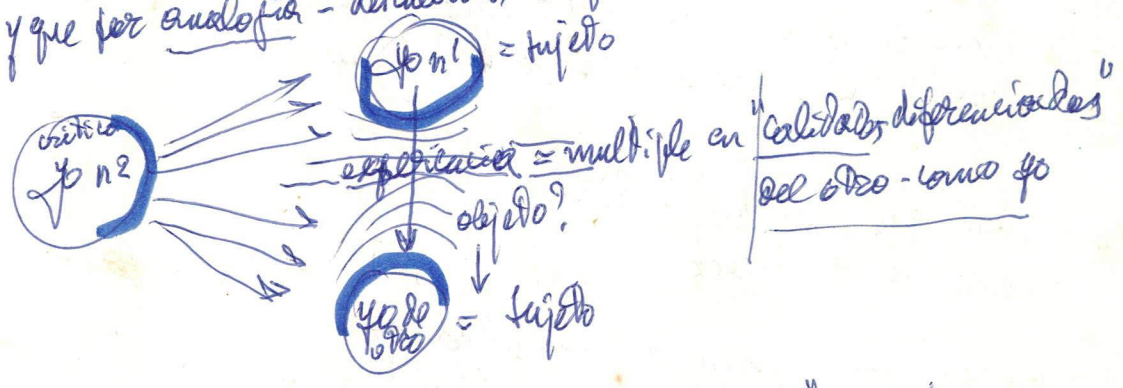 y que por analogía -
yo n¹ = sujeto
crítico
yo n²
experiencia = multiple en "calidades diferenciadas"
del otro - como yo
objeto?
yo de otro = sujeto